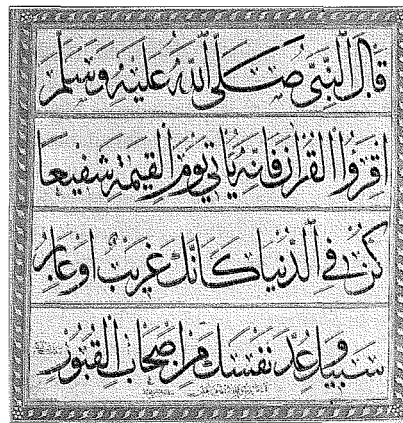 قَالَ النَّبِيُّ صَلَّى اللَّهُ عَلَيْهِ وَسَلَّمَ
اقْرَؤُا الْقُرْآنَ فَإِنَّهُ يَأْتِي يَوْمَ الْقِيمَةِ شَفِيعًا
كُنْ فِي الدُّنْيَا كَأَنَّكَ غَرِيبٌ أَوْ عَابِرُ
سَبِيلٍ وَعُدَّ نَفْسَكَ مِنْ أَصْحَابِ الْقُبُورِ